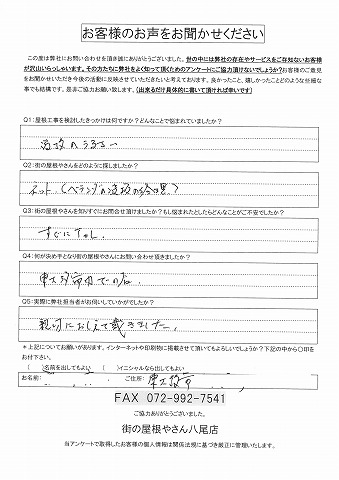 お客様のお声をお聞かせください
この度は弊社にお問い合わせを頂き誠にありがとうございました。世の中には弊社の存在やサービスをご存知ないお客様
が沢山いらっしゃいます。その方たちに弊社をよく知って頂くためのアンケートにご協力頂けないでしょうか?お客様のご意見
をお聞かせいただき今後の活動に反映させていただきたいと考えております。良かったこと、嬉しかったことどのような些細な
事でも結構です。是非ご協力お願い致します。(出来るだけ具体的に書いて頂ければ幸いです)
Q1:屋根工事を検討したきっかけは何ですか?どんなことで悩まれていましたか?
Q2:街の屋根やさんをどのように探しましたか?
ネット (ベランダの
Q3:街の屋根やさんを知りすぐにお問合せ頂けましたか?もし悩まれたとしたらどんなことがご不安でしたか?
すぐにTEL.
Q4:何が決め手となり街の屋根やさんにお問い合わせ頂きましたか?
Q5:実際に弊社担当者がお伺いしていかがでしたか?
親切におしえて戴きました。
*上記についてお願いがあります。インターネットや印刷物に掲載させて頂いてもよろしいでしょうか?下記の中から〇印を
お付下さい。
( )名前を出してもよい ( )イニシャルなら出してもよい
お名前: ご住所: 東大阪市
FAX 072-992-7541
ご協力ありがとうございました。
街の屋根やさん八尾店
当アンケートで取得したお客様の個人情報は関係法規に基づき厳正に管理いたします。